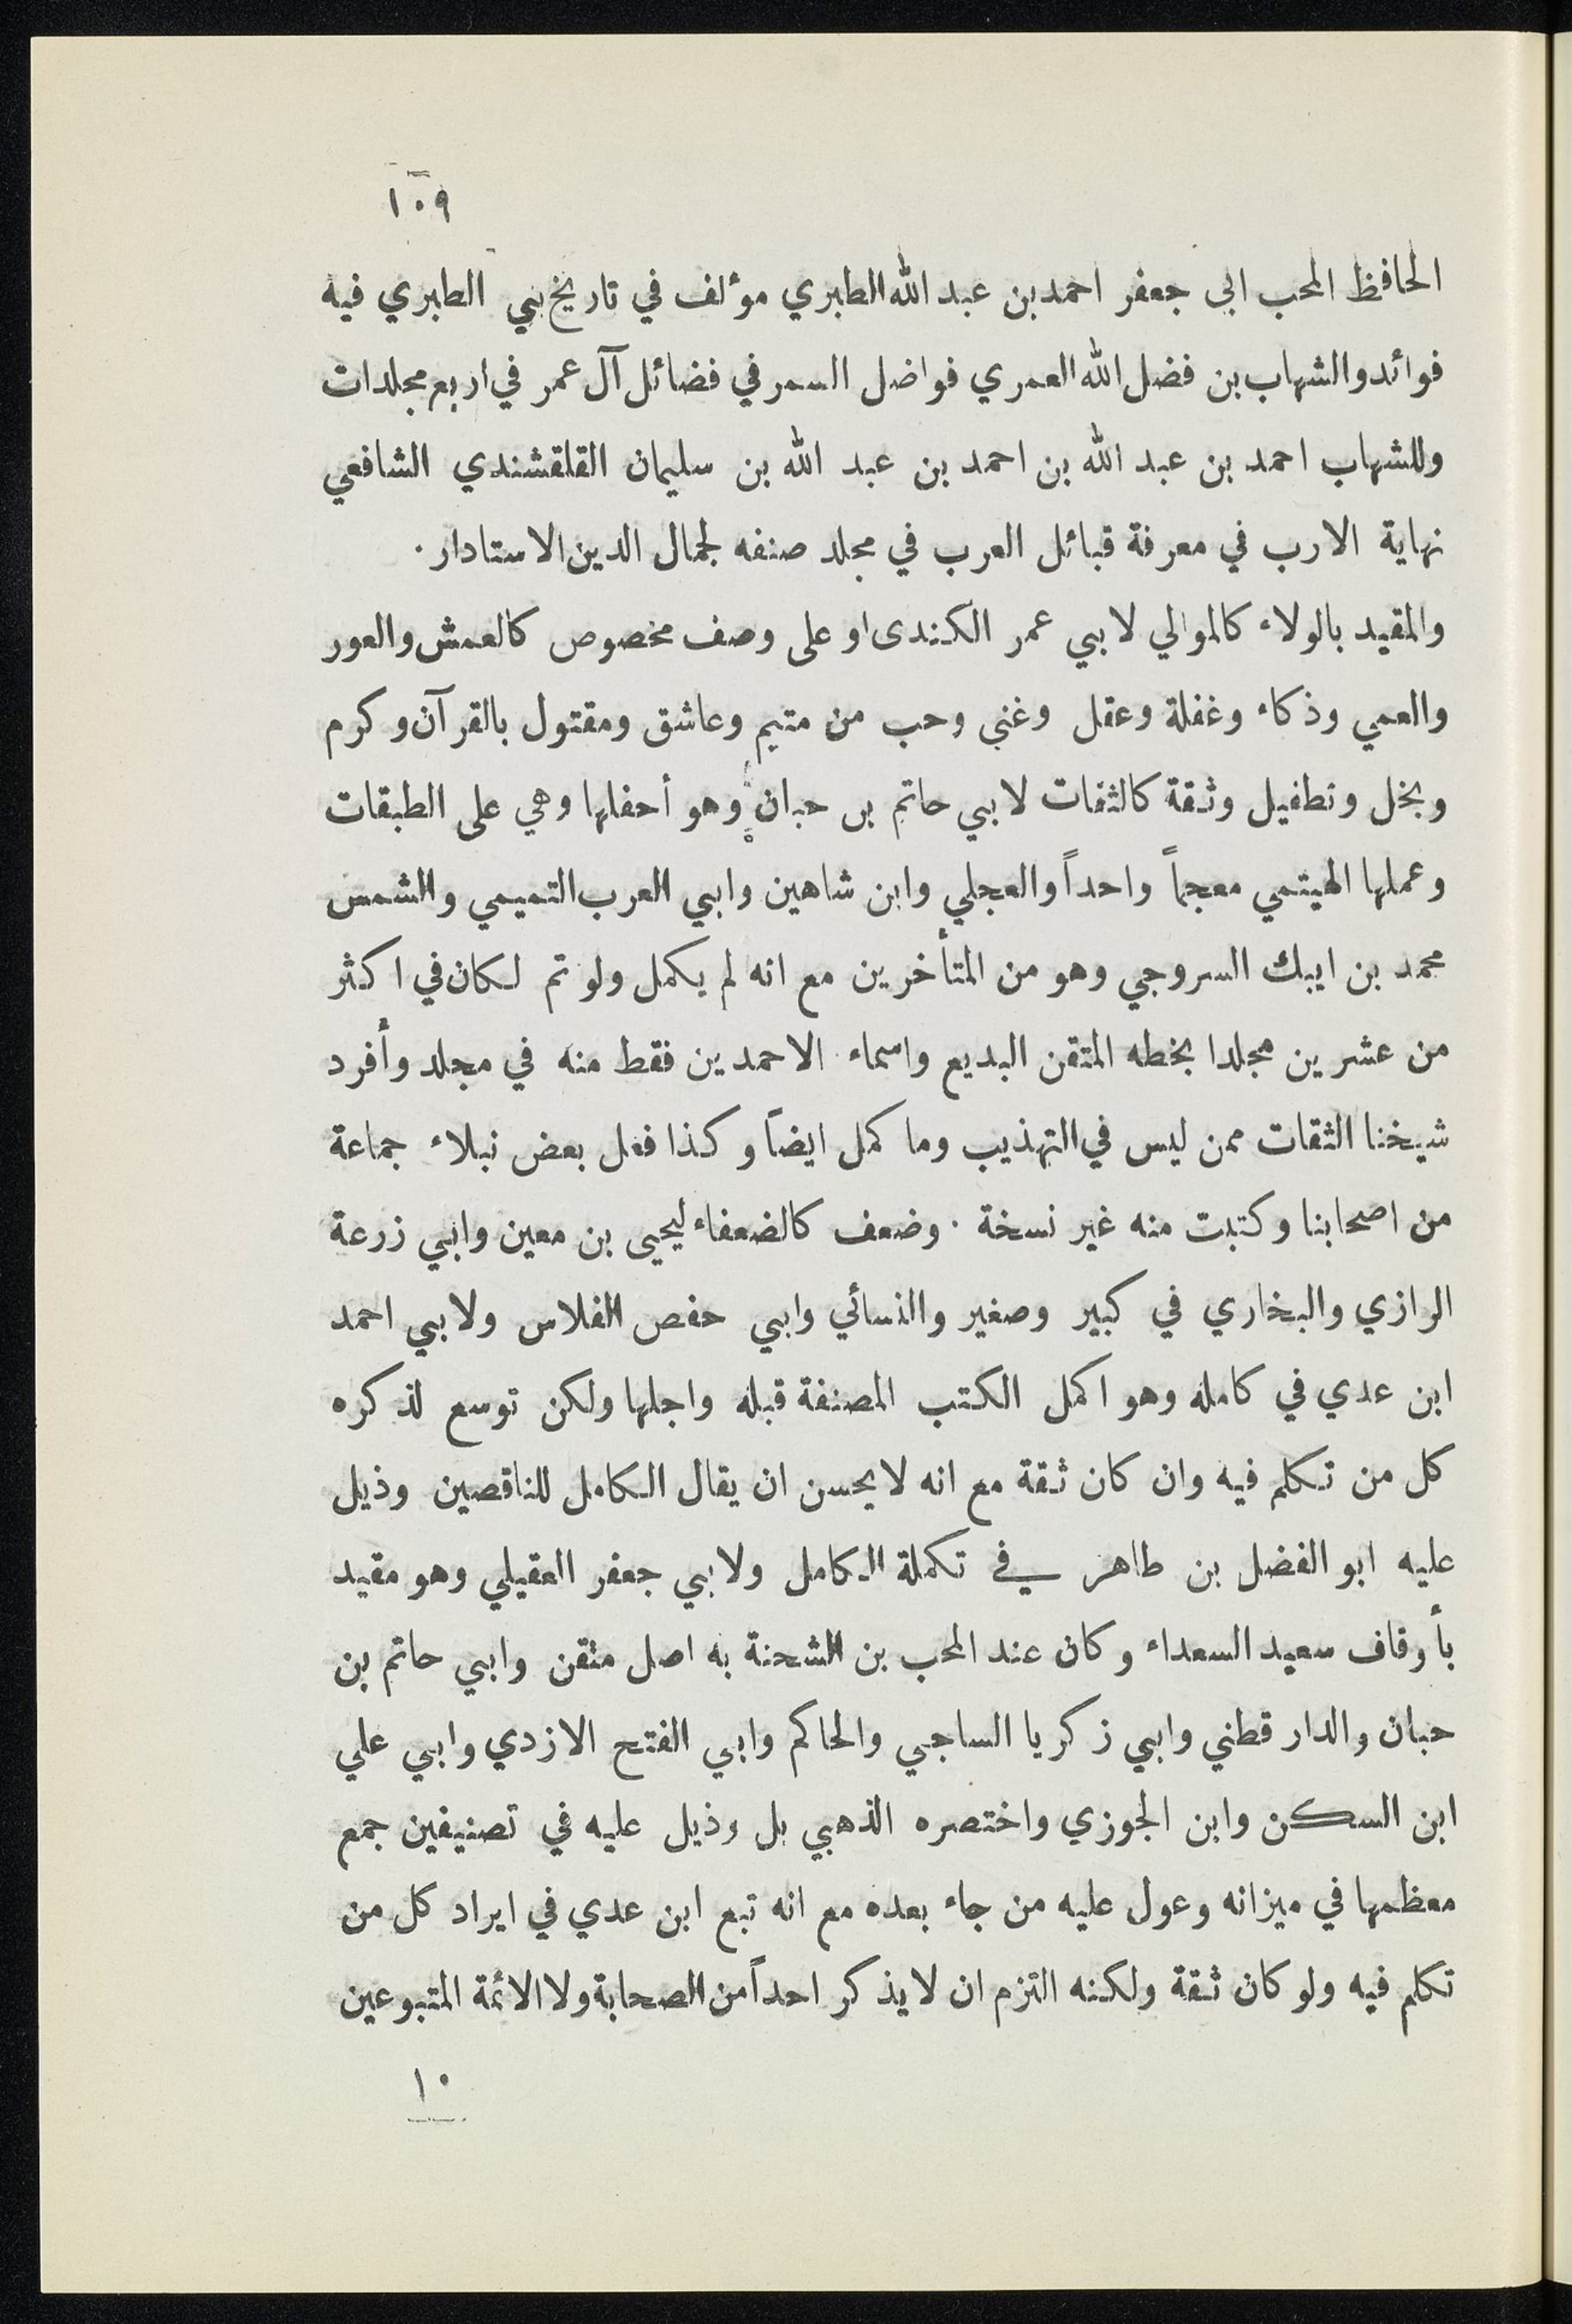 ١٠٩
الحافظ المحب ابى جعفر احمد بن عبد الله الطبري مؤلف في تاريخ بني الطبري فيه
فوائد والشهاب بن فضل الله العمري فواضل السمر في فضائل آل عمر في اربع مجلدات
وللشهاب احمد بن عبد الله بن احمد بن عبد الله بن سليمان القلقشندي الشافعي
نهاية الارب في معرفة قبائل العرب في مجلد صنفه لجمال الدين الاستادار .
والمقيد بالولاء كالموالي لابي عمر الكندى او على وصف مخصوص كالعمش والعور
والعمي وذكاء وغفلة وعقل وغنى وحب من متيم وعاشق ومقتول بالقرآن وكرم
وبخل وتطفيل وثقة كالثقات لابي حاتم بن حبان وهو أحفلها وهي على الطبقات
وعملها الهيتمي معجماً واحداً والعجلي وابن شاهين وابي العرب التميمي والشمس
محمد بن ايبك السروجي وهو من المتأخرين مع انه لم يكمل ولو تم لكان في اكثر
من عشرين مجلدا بخطه المتقن البديع واسماء الاحمدين فقط منه في مجلد وأفرد
شيخنا الثقات ممن ليس في التهذيب وما كمل ايضاً وكذا فعل بعض نبلاء جماعة
من اصحابنا وكتبت منه غير نسخة . وضعف كالضعفاء ليحيى بن معين وابي زرعة
الرازي والبخاري في كبير وصغير والنسائي وابي حفص الفلاس ولابي احمد
ابن عدي في كامله وهو اكمل الكتب المصنفة قبله واجلها ولكن توسع لذكره
كل من تكلم فيه وان كان ثقة مع انه لا يحسن ان يقال الكامل للناقصين وذيل
عليه ابو الفضل بن طاهر في تكملة الكامل ولابي جعفر العقيلي وهو مقيد
بأوقاف سعيد السعداء وكان عند المحب بن الشحنة به اصل متقن وابي حاتم بن
حبان والدار قطني وابي زكريا الساجي والحاكم وابي الفتح الازدي وابي علي
ابن السكن وابن الجوزي واختصره الذهبي بل وذيل عليه في تصنيفين جمع
معظمها في ميزانه وعول عليه من جاء بعده مع انه تبع ابن عدي في ايراد كل من
تكلم فيه ولو كان ثقة ولكنه التزم ان لا يذكر احداً من الصحابة ولا الائمة المتبوعين
١٠